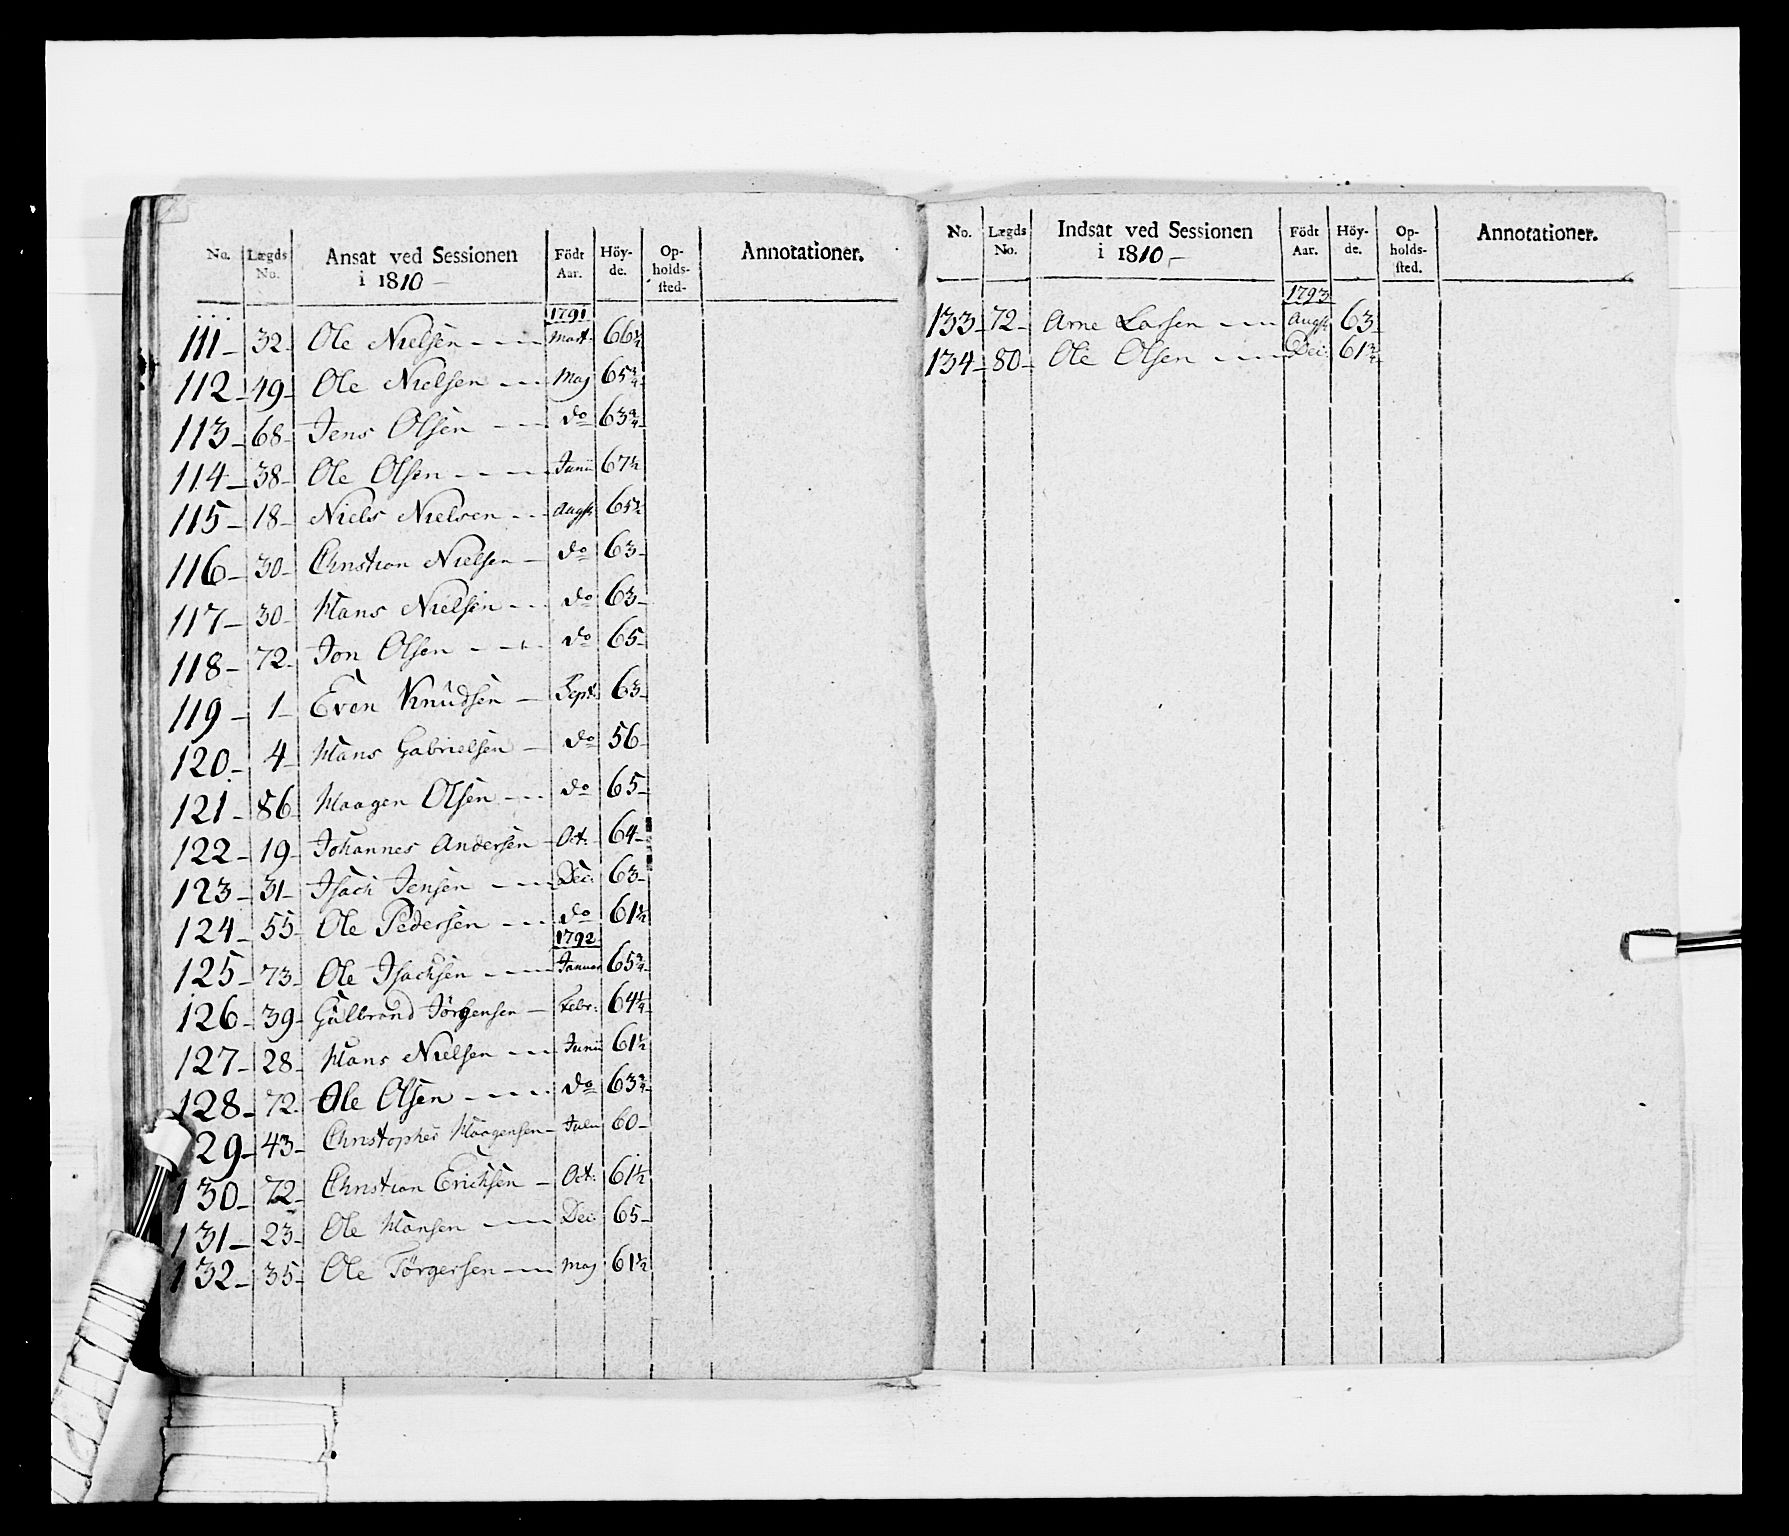 No. Lægds No. Ansat ved Sessionen i 1810 – Födt Aar. Höy-de. Op-holds-sted. Annotationer.
1791
111 – 32 – Ole Nielsen – – – Mart: 66½
112 – 49 – Ole Nielsen – – – Maj 65¾
113 – 68 – Jens Olsen – – – do 63¾
114 – 38 – Ole Olsen – – – Junii 67½
115 – 18 – Niels Nielsen – – Augst 65½
116 – 30 – Christian Nielsen – do 63 –
117 – 30 – Hans Nielsen – – do 63 –
118 – 72 – Jon Olsen – – – do 65 –
119 – 1 – Even Knudsen – Sept: 63 –
120 – 4 – Hans Gabrielsen – do 56 –
121 – 86 Haagen Olsen – – do 65 –
122 – 19 – Johannes Andersen – Oct: 64 –
123 – 31 – Isach Jensen – – – Dec: 63 –
124 – 55 – Ole Pedersen – – – do 61½
1792
125 – 73 – Ole Isachsen – – – Januar 65¾
126 – 39 – Gulbrand Jörgensen – Febr: 64¼
127 – 28 – Hans Nielsen – – – Junii 61½
128 – 72 – Ole Olsen – – – – do 63¾
29 – 43 – Christopher Haagensen – Julii 60 –
130 – 72 – Christian Erichsen – Oct: 61½
131 – 23 – Ole Hansen – – – Dec: 65 –
132 – 35 – Ole Törgersen – – – Maj 61½
No. Lægds No. Indsat ved Sessionen i 1810 – Födt Aar. Höy-de. Op-holds-sted. Annotationer.
1793
133 – 72 – Arne Larsen – – – Augst 63 –
134 – 80 – Ole Olsen – – – Dec: 61¾